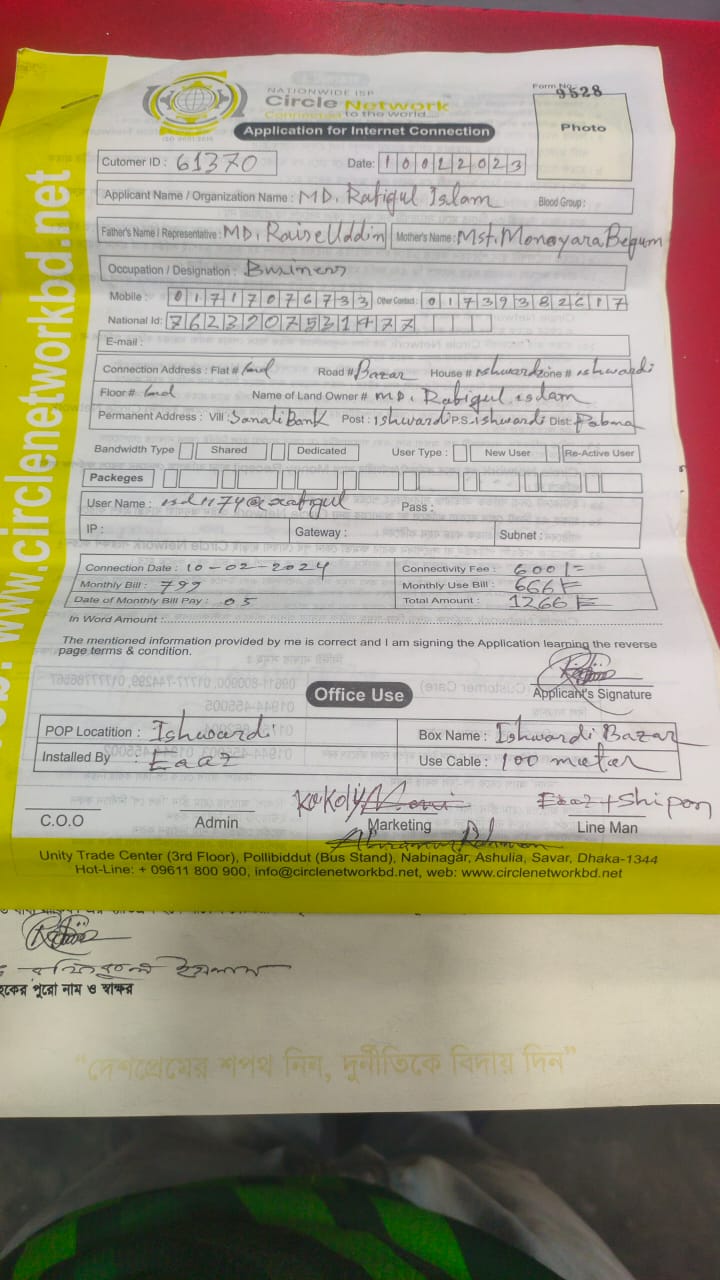 www.circlenetworkbd.net
NATIONWIDE ISP
Circle Network
Connected to the world....
ISO 9001:2015
Application for Internet Connection
Form No. 9528
Photo
Cutomer ID : 61370 Date: 10022023
Applicant Name / Organization Name : MD. Rafiqul Islam Blood Group :
Father's Name / Representative : MD. Raise Uddin Mother's Name : Mst. Monoyara Begum
Occupation / Designation : Business
Mobile : 01717076733 Other Contact : 01739382617
National Id: 7623207531477
E-mail :
Connection Address : Flat # Road # Bazar House # ishwardi Zone # ishwardi
Floor # Name of Land Owner # MD. Rabiqul islam
Permanent Address : Vill : Sonali Bank Post : ishwardi P.S. ishwardi Dist: Pabna
Bandwidth Type Shared Dedicated User Type : New User Re-Active User
Packeges
User Name : Pass :
IP : Gateway : Subnet :
Connection Date : 10-02-2024 Connectivity Fee : 600/=
Monthly Bill : 799 Monthly Use Bill : 666/=
Date of Monthly Bill Pay : 05 Total Amount : 1266/=
In Word Amount :
The mentioned information provided by me is correct and I am signing the Application learning the reverse
page terms & condition.
Applicant's Signature
Office Use
POP Locatition : Ishwardi Box Name : Ishwardi Bazar
Installed By : Eaaz Use Cable : 100 meter
Kakoly Eaaz + Shipon
C.O.O Admin Marketing Line Man
Unity Trade Center (3rd Floor), Pollibiddut (Bus Stand), Nabinagar, Ashulia, Savar, Dhaka-1344
Hot-Line: + 09611 800 900, info@circlenetworkbd.net, web: www.circlenetworkbd.net
রফিকুল ইসলাম
হকের পুরো নাম ও স্বাক্ষর
“দেশপ্রেমের শপথ নিন, দুর্নীতিকে বিদায় দিন”